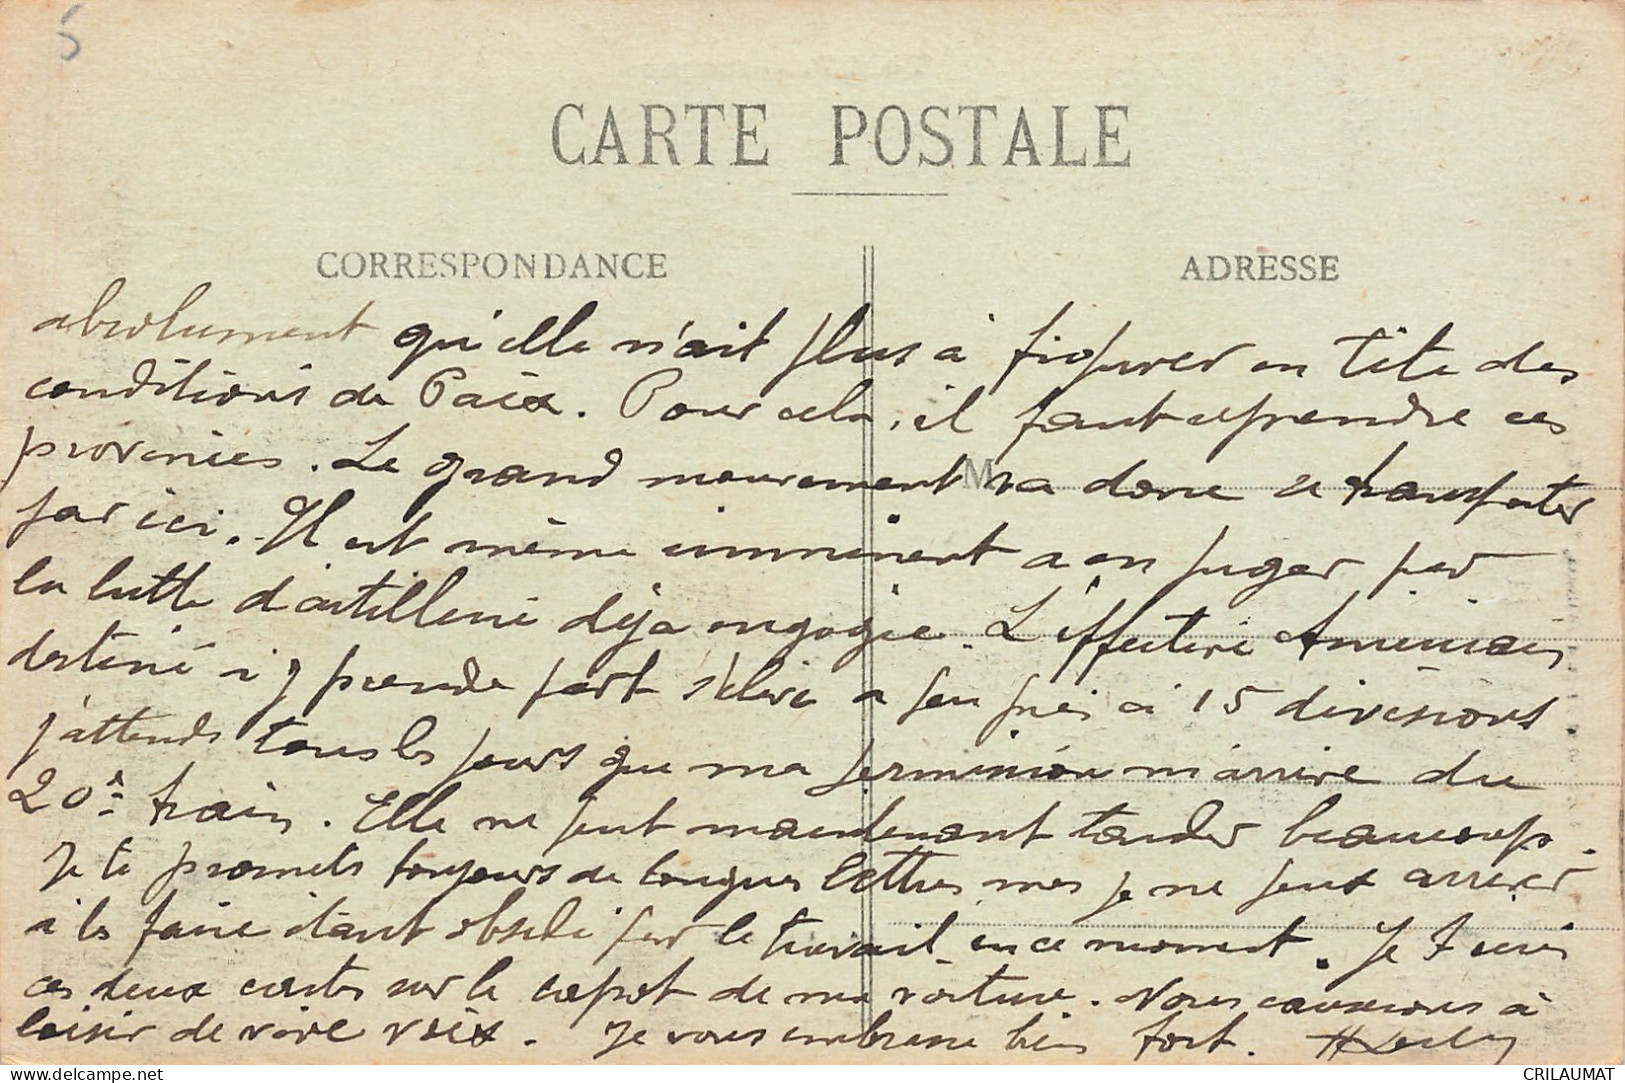 5
CARTE POSTALE
CORRESPONDANCE
ADRESSE
absolument qu'elle n'ait plus à figurer en tête des
conditions de Paix. Pour cela, il faut reprendre ces
provinces. Le grand mouvement va donc se transporter
M
par ici. Il est même imminent a en juger par
la lutte d'artillerie déja engagée. L'effectif Américain
destiné à y prendre part s'élève a peu près à 15 divisions.
J'attends tous les jours que ma permission m'arrive du
20è train. Elle ne peut maintenant tarder beaucoup.
Je te promets toujours de longues lettres mais je ne peux arriver
à les faire étant obsédé par le travail en ce moment. Je t'écris
ces deux cartes sur le capot de ma voiture. Nous causerons à
loisir de vive voix. Je vous embrasse bien fort.
CRILAUMAT